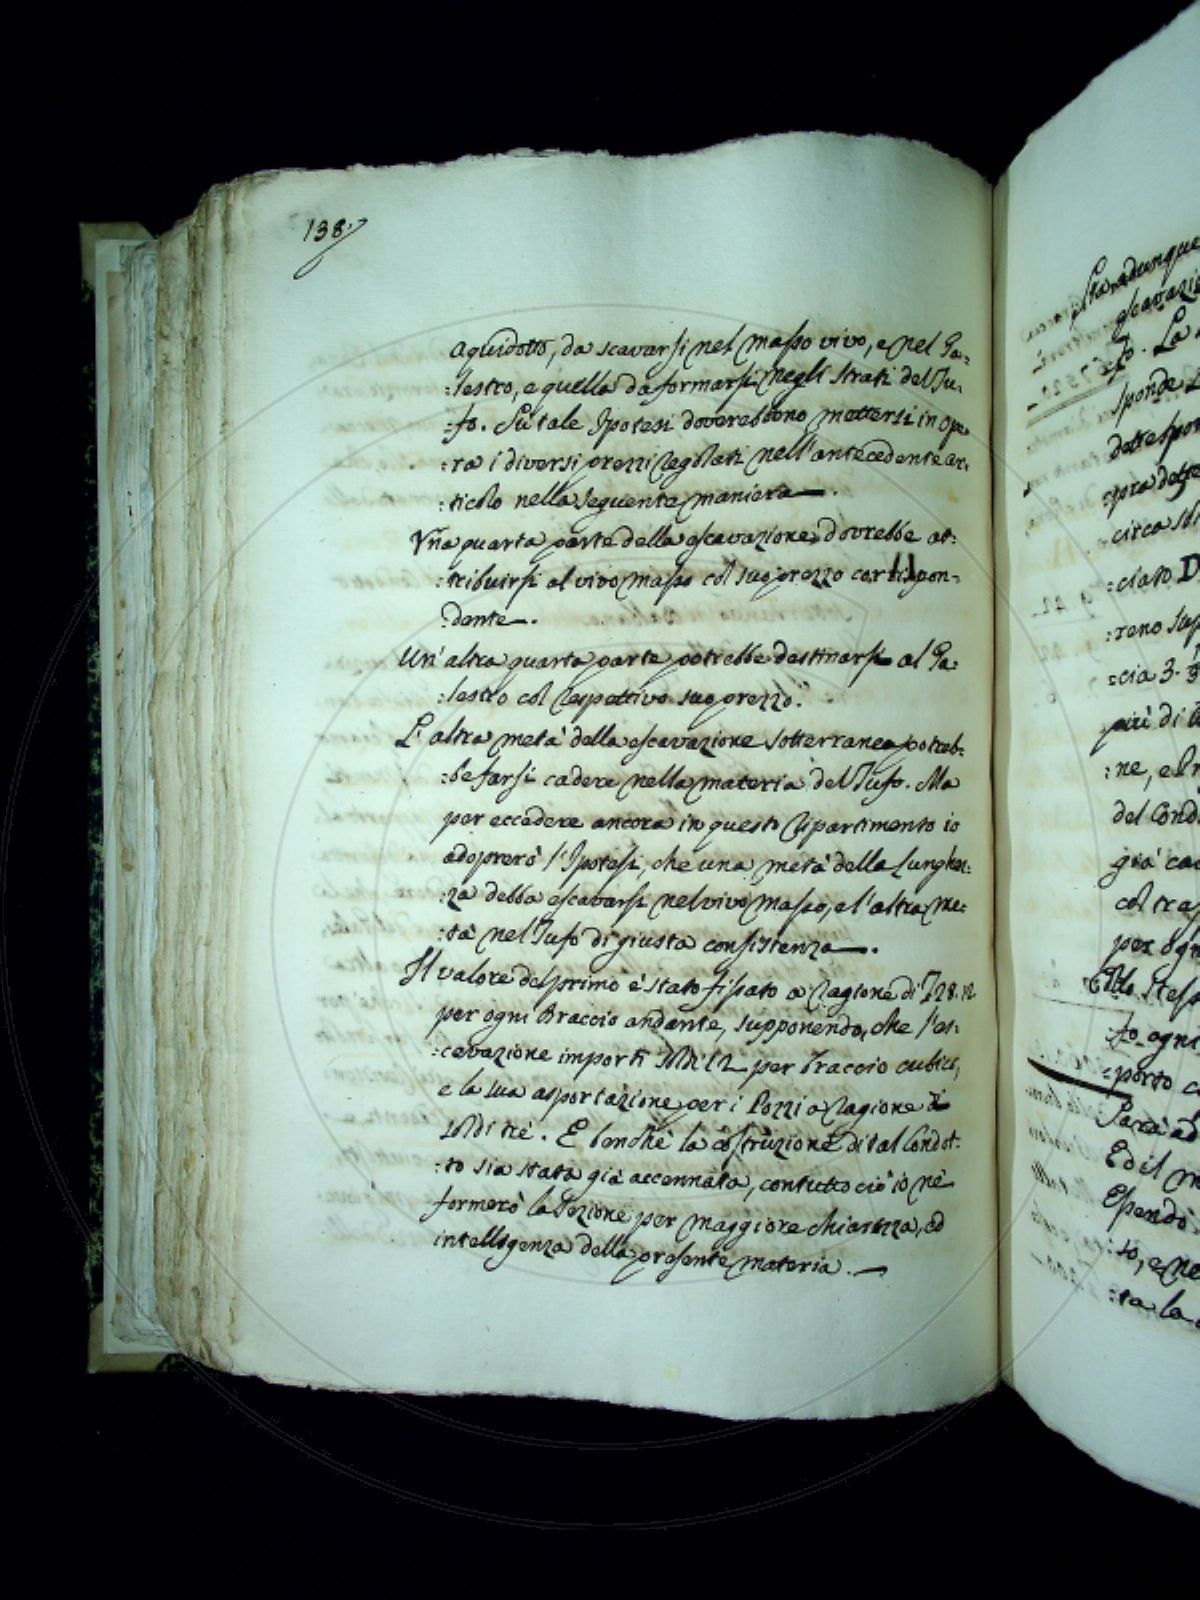 138.
aquidotto, da scavarsi nel masso vivo, e nel Ga=
:lestro, e quella da formarsi negli strati del Tu=
:fo. Su tale Ipotesi doverebbono mettersi in ope=
:ra i diversi prezzi regolati nell'antecedente ar=
:ticolo nella seguente maniera —.
Una quarta parte della escavazione dovrebbe at=
:tribuirsi al vivo masso col suo prezzo corrispon=
:dente —.
Un'altra quarta parte potrebbe destinarsi al Ga=
:lestro col respettivo suo prezzo.
L'altra metà della escavazione sotterranea potreb=
:be farsi cadere nella materia del Tufo. Ma
per eccedere ancora in questo ripartimento io
adoprerò l'Ipotesi, che una metà della lunghez=
:za debba escavarsi nel vivo masso, e l'altra me=
:tà nel Tufo di giusta consistenza —.
Il valore del primo è stato fissato a ragione di 28.12
per ogni Braccio andante, supponendo, che l'es=
:cavazione importi soldi 12 per braccio cubico,
e la sua asportazione per i Pozzi a ragione di
soldi tré. E benche la costruzione di tal Condot=
:to sia stata già accennata, contuttociò io ne
formerò la sezione per maggiore chiarezza, ed
intelligenza della presente materia. —
Sia adunque
escavazio
fo. La
sponde
dette spon
:pra dette
circa
:ciato D
:reno
:cia 3.
più di
:ne, e
del Condo
già
col
per ogn
:fo ogni
:porto
Sarà ad
Ed il
Spendo
:to, e ne
:ta la